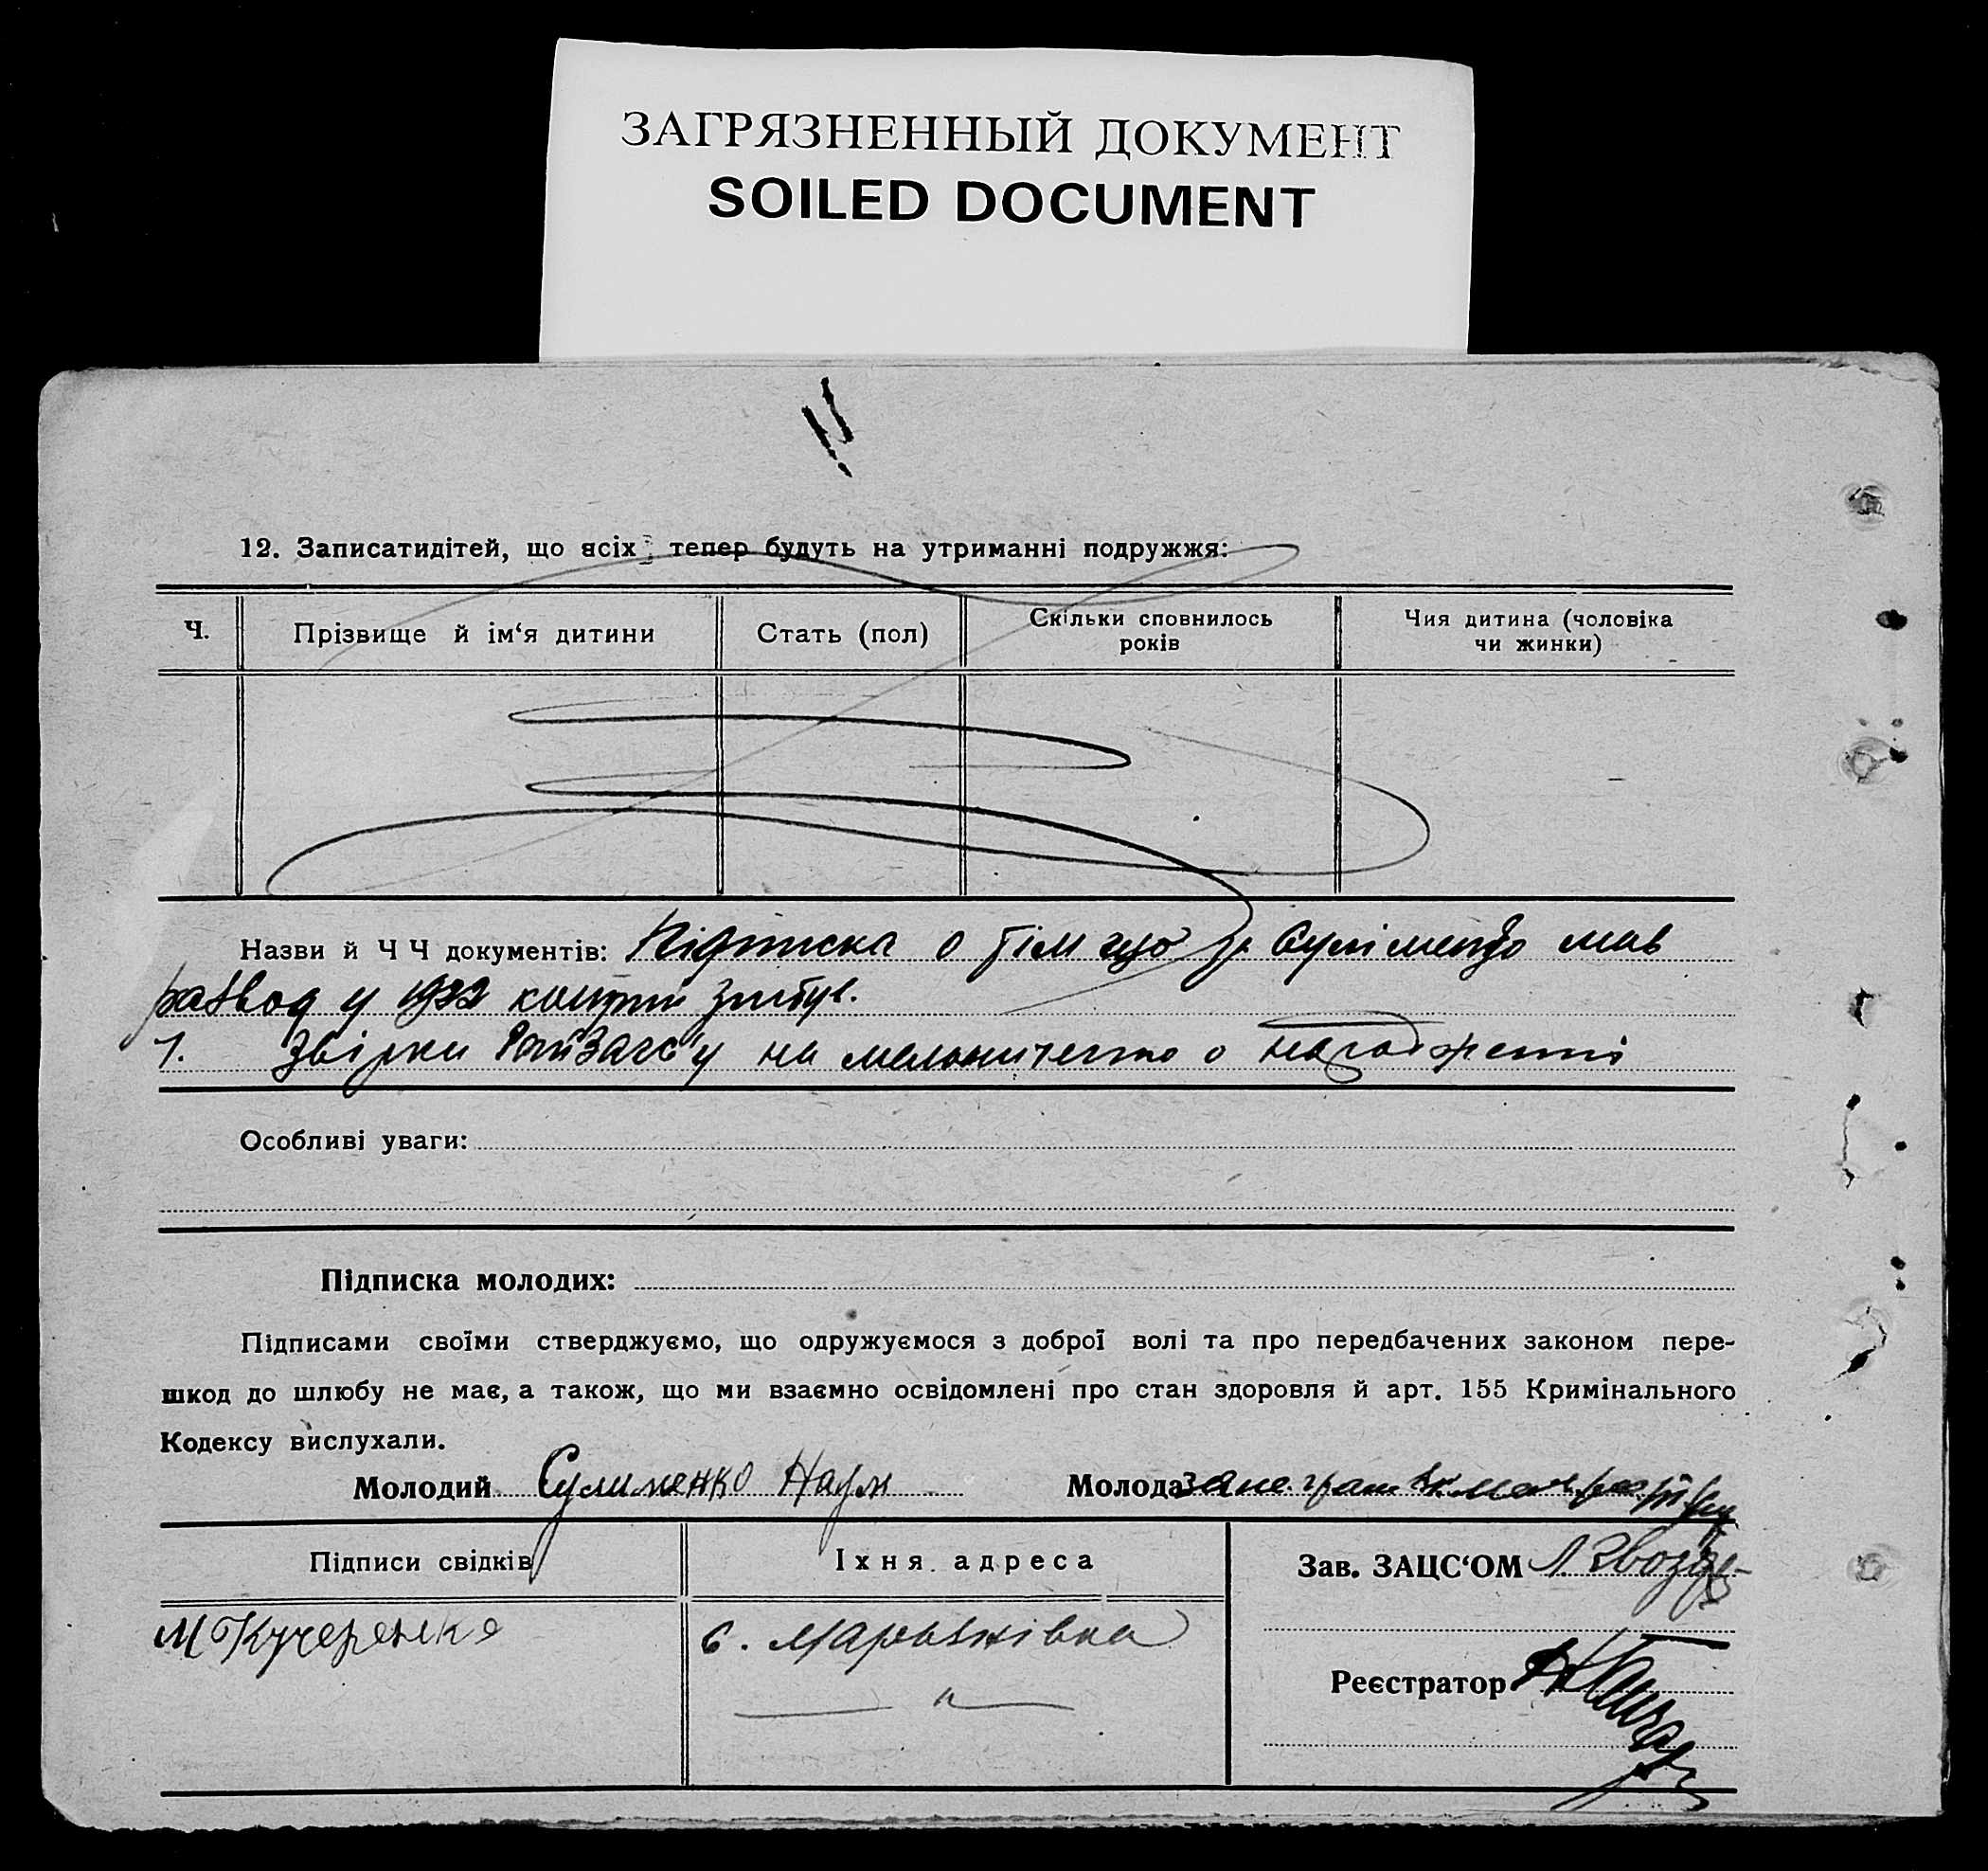 ЗАГРЯЗНЕННЫЙ ДОКУМЕНТ
SOILED DOCUMENT
12. Записатидітей, що всіх тепер будуть на утриманні подружжя:
Ч.
Прізвище й ім‘я дитини
Стать (пол)
Скільки сповнилось
років
Чия дитина (чоловіка
чи жинки)
Назви й Ч Ч документів: Підписка о тім що гр. Суліменко мав
развод у 1922
1. Звірки РайЗагс'у на
Особливі уваги:
Підписка молодих:
Підписами своїми стверджуємо, що одружуємося з доброї волі та про передбачених законом пере-
шкод до шлюбу не має, а також, що ми взаємно освідомлені про стан здоровля й арт. 155 Кримінального
Кодексу вислухали.
Молодий Сулименко Наум
Молода
Підписи свідків
Їхня адреса
Зав. ЗАЦС‘ОМ
М Кучеренко
с. Мар'янівка
— " —
Реєстратор